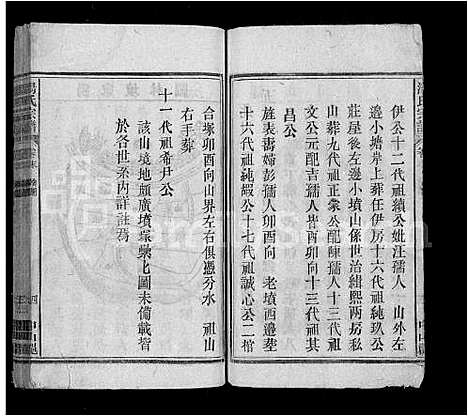 湯氏宗譜
伊公十二代祖續公妣汪孺人　山外左
邊小塘岸上葬任伊房十六代祖純玖公
莊屋後左邊小墳山係世治緝熙兩房私
山葬九代祖正彖公配陳孺人十三代祖
文公元配吉孺人皆酉卯向十三代祖其
昌公
旌表耆婦彭孺人卯酉向　老墳酉邊塋
十六代祖純嘏公十七代祖誠心公二棺
合塚卯酉向山界左右俱憑分水　祖山
右手葬
十一代祖希尹公
該山境地頗廣墳塚槩北圖未備載皆
於各世系內詳註焉
湯氏宗譜
中山祀